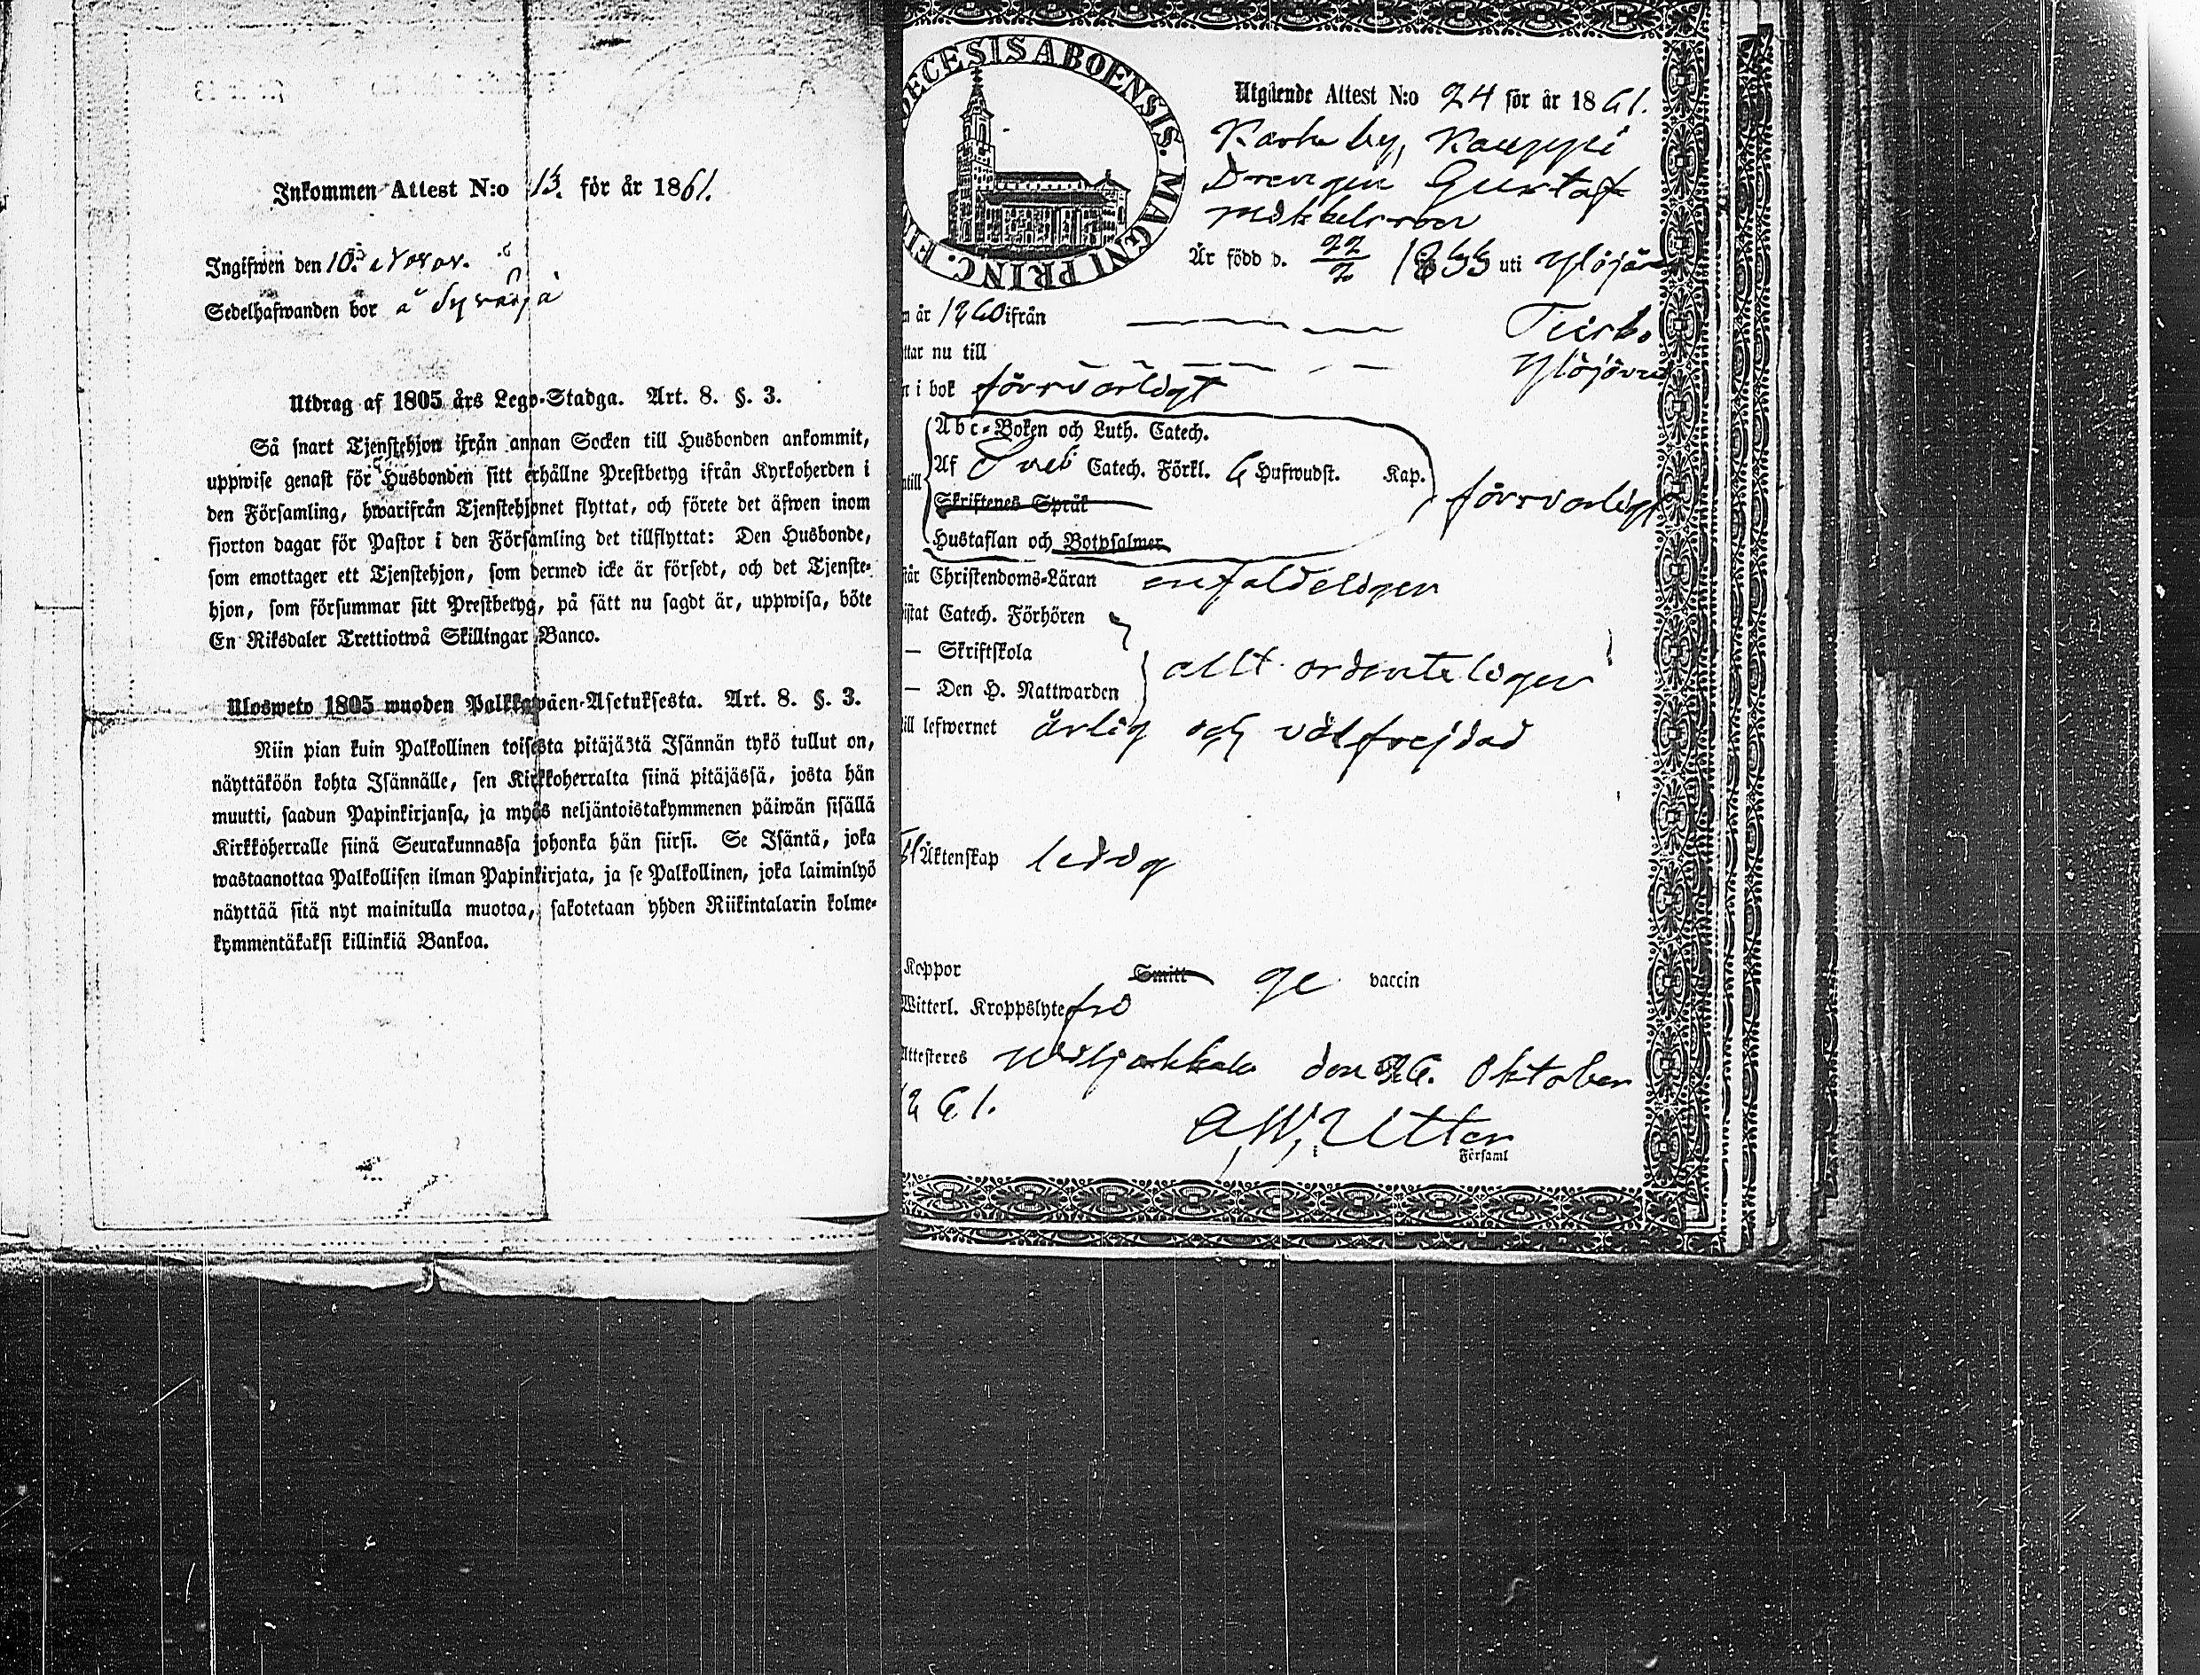 Inkommen Attest N:o 13. för år 1861.
Ingifwen den 10. Novov.
Sedelhafwanden bor å
Utdrag af 1805 års Lego-Stadga. Art. 8. §. 3.
Så snart Tjenstehjon ifrån annan Socken till Husbonden ankommit,
uppwise genast för Husbonden sitt erhållne Prestbetyg ifrån Kyrkoherden i
den Församling, hwarifrån Tjenstehjonet flyttat, och förete det äfwen inom
fjorton dagar för Pastor i den Församling det tillflyttat: Den Husbonde,
som emottager ett Tjenstehjon, som dermed icke är försedt, och det Tjenste-
hjon, som försummar sitt Prestbetyg, på sätt nu sagdt är, uppwisa, böte
En Riksdaler Trettiotwå Skillingar Banco.
Ulosweto 1805 wuoden Palkkawäen-Asetuksesta. Art. 8. §. 3.
Niin pian kuin Palkollinen toisesta pitäjästä Isännän tykö tullut on,
näyttäköön kohta Isännälle, sen Kirkkoherralta siinä pitäjässä, josta hän
muutti, saadun Papinkirjansa, ja myös neljäntoistakymmenen päiwän sisällä
Kirkkoherralle siinä Seurakunnassa johonka hän siirsi. Se Isäntä, joka
wastaanottaa Palkollisen ilman Papinkirjata, ja se Palkollinen, joka laiminlyö
näyttää sitä nyt mainitulla muotoa, sakotetaan yhden Riikintalarin kolme-
kymmentäkaksi killinkiä Bankoa.
ECESIS ABOENSIS. MAGNI PRINC. FI
Utgående Attest N:o 24 för år 1861.
Karhe by, Kauppi
Drengen Gustaf
Mikkelsson
Är född d. 22/2 1833 uti Ylöjär
n år 1860 ifrån
ttar nu till Ylöjövi
n i bok försvarligt
Abc-Boken och Luth. Catech.
Af Sveb Catech. Förkl. 6 Hufwudst. Kap.
ntill Skriftenes Språk försvarligt
Hustaflan och Botpsalmer
står Christendoms-Läran enfaldeligen
istat Catech. Förhören
— Skriftskola allt ordenteligen
— Den H. Nattwarden
ill lefwernet ärlig och välfrejdad
Äktenskap ledig
Koppor Smitt ge vaccin
Witterl. Kroppslyte fri
Attesteres Wiljakkala den 26. Oktober
1861.
A, W, Utter
Församl